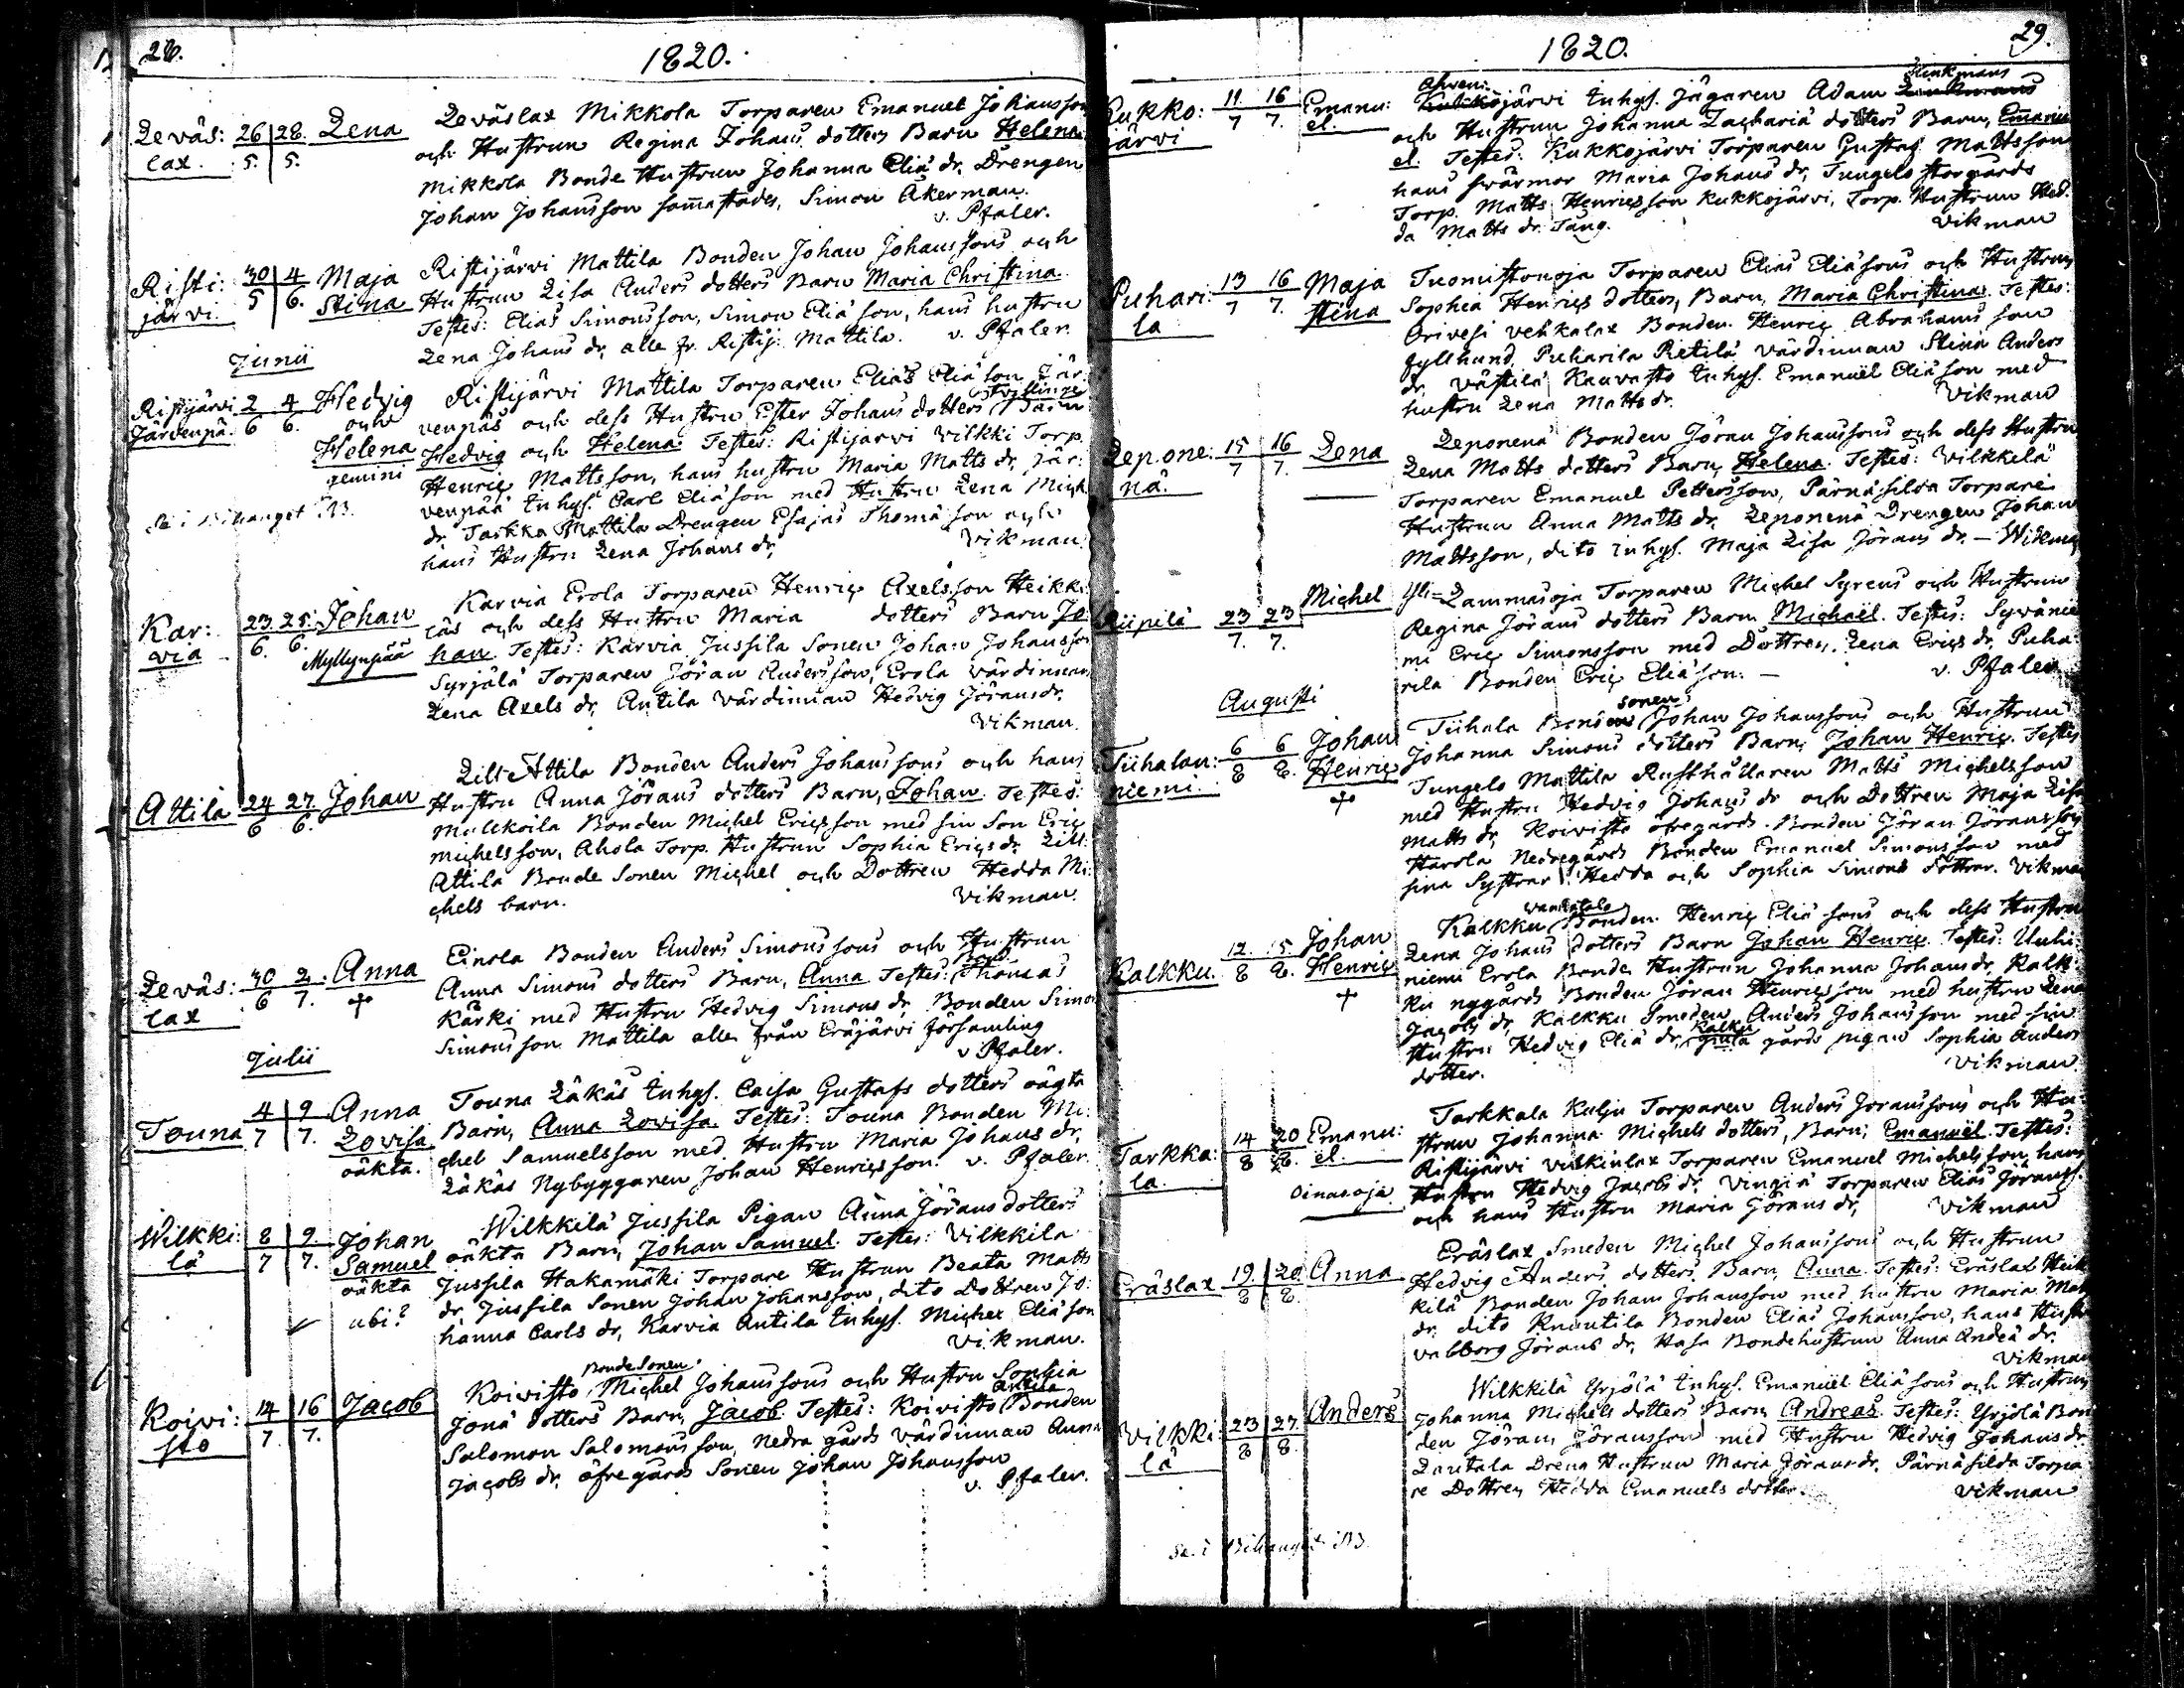 28.
1820.
Leväs:
lax.
26 | 28.
5. | 5.
Lena
Leväslax Mikkola Torparen Emanuel Johansson
och Hustrun Regina Johans dotters Barn Helena
Mikkola Bonde Hustrun Johanna Eliä dr, Drengen
Johan Johansson sammastädes, Simon Åkerman.
v. Pfaler.
Risti:
järvi.
30 | 4
5 | 6.
Maja
Stina
Ristijärvi Mattila Bonden Johan Johanssons och
Hustrun Lisa Anders dotters Barn Maria Christina.
Testes: Elias Simonsson, Simon Eliä son, hans hustru
Lena Johans dr, alle fr. Ristij: Mattila. v. Pfaler.
Junii
Ristijärvi
Järvenpä.
2 | 4
6 | 6.
Hedvig
och
Helena
gemini
Ristijärvi Mattila Torparen Eliäs Eliä son Jär:
venpäs och dess Hustru Ester Johans dotters tvillinge Barn
Hedvig och Helena. Testes: Ristijärvi Vilkki Torp.
Henric Mattsson, hans hustru Maria Matts dr, Jär:
venpää Inhys. Carl Eliä son med Hustru Lena Mich.
dr, Tarkka Mattila Drengen Esajas Thomä son och
hans Hustru Lena Johans dr,
Vikman.
Se i Bihanget
Kar:
via
23. | 25.
6. | 6.
Johan
Myllynpää
Karvia Erola Torparen Henric Axelsson Heikki:
läs och dess Hustru Maria dotters Barn Jo
han. Testes: Karvia Jussila Sonen Johan Johansson
Syrjälä Torparen Jöran Andersson, Erola värdinnan
Lena Axels dr, Antila värdinnan Hedvig Jöransdr.
Vikman.
Attila
24 | 27.
6 | 6.
Johan
Lill Attila Bonden Anders Johanssons och hans
Hustru Anna Jörans dotters Barn, Johan. Testes:
Mulkoila Bonden Michel Ericsson med sin Son Eric
Michelsson, Ahola Torp. Hustrun Sophia Erics dr. Lill:
Attila Bonde Sonen Michel och Dottren Hedda Mi:
chels barn.
Vikman.
Leväs:
lax
30 | 2.
6 | 7.
Anna
+
Einola Bonden Anders Simonssons och Hustrun
Anna Simons dotters Barn, Anna. Testes: Bond. Thomas
Kärki med Hustru Hedvig Simons dr, Bonden Simon
Simonsson Mattila alle från Eräjärvi församling
v Pfaler.
Julii
Touna
4 | 9
7 | 7.
Anna
Lovisa
oäkta.
Touna Läkäs Inhys. Caisa Gustafs dotters oägta
Barn, Anna Lovisa. Testes: Touna Bonden Mi:
chel Samuelsson med Hustru Maria Johans dr,
Läkäs Nybyggaren Johan Henricsson. v. Pfaler.
Wilkki:
lä
8 | 9.
7 | 7.
Johan
Samuel
oäkta
ubi?
Wilkkilä Jussila Pigan Anna Jörans dotters
oäkta Barn, Johan Samuel. Testes: Vilkkila
Jussila Hakamäki Torpare Hustrun Beata Matts
dr, Jussila Sonen Johan Johansson, dito Dottren Jo:
hanna Carls dr, Karvia Antila Inhys. Michel Eliä son
Vikman.
Koivi:
sto
14 | 16
7. | 7.
Jacob
Koivisto Bonde Sonen Michel Johanssons och Hustru Sophia
Jonä dotters Barn, Jacob. Testes: Koivisto Antila Bonden
Salomon Salomonsson, Nedra gårds värdinnan Anna
Jacobs dr, öfregårds Sonen Johan Johansson
v. Pfaler.
29.
1820.
Kukko:
järvi
11 | 16
7 | 7.
Emanu:
el.
Ahven:
Kukkojärvi Inhys. Jägaren Adam Hinkmans
och Hustrun Johanna Zachariä dotters Barn, Emanu
el. Testes: Kukkojärvi Torparen Gustaf Mattsson
hans Svärmor Maria Johans dr, Tungelo storgårds
Torp. Matts Henricsson Kukkojärvi, Torp. Hustrun Hed:
da Matts dr. Tung.
Vikman
Puhari:
la
13 | 16
7 | 7.
Maja
Stina
Tuomistonoja Torparen Elias Eliäsons och Hustrun
Sophia Henrics dotters, Barn, Maria Christina. Testes:
Orivesi Vehkalax Bonden Henric Abrahams son
Gyllhund, Puharila Retilä värdinnan Stina Anders
dr, Västilä Kauvasto Inhys. Emanuël Eliäson med
hustru Lena Matts dr.
Vikman
Lepone:
nä.
15 | 16
7 | 7.
Lena
Leponenä Bonden Jöran Johanssons och dess Hustru
Lena Matts dotters Barn, Helena. Testes: Vilkkilä
Torparen Emanuel Pettersson, Pärnäsilda Torpare
Hustrun Anna Matts dr, Leponenä Drengen Johan
Mattsson, dito inhys. Maja Lisa Jörans dr. — Wikman
Riipilä
23 | 23
7. | 7.
Michel
Yli=Lammasoja Torparen Michel Syrens och Hustrun
Regina Jörans dotters Barn, Michaël. Testes: Syvänie
mi Eric Simonsson med Dottren, Lena Erics dr, Puha:
rila Bonden Eric Eliäson. —
v. Pfaler
Augusti
Tiihalan:
niemi.
6 | 6
8 | 8.
Johan
Henric
+
Tiihala Bonde sonen Johan Johanssons och Hustrun
Johanna Simons dotters Barn, Johan Henric. Testes
Tungelo Mattila Rusthållaren Matts Michelsson
med Hustru Hedvig Johans dr och Dottren Maja Lisa
Matts dr, Koivisto öfregårds Bonden Jöran Jöransson
Harola Nedregårds Bonden Emanuel Simonsson med
sina Systrar Hedda och Sophia Simons döttrar. Vikman
Kalkku.
12. | 15
8 | 8.
Johan
Henric
+
Kalkku Vanhatalo Bonden Henric Eliä sons och dess Hustru
Lena Johans dotters Barn Johan Henric. Testes: Uuhi:
niemi Erola Bonde Hustrun Johanna Johans dr, Kalk:
ku nygårds Bonden Jöran Henricsson med hustru Lena
Jacobs dr, Kalkku Smeden Anders Johansson med sin
Hustru Hedvig Eliä dr, Kalku gårds pigan Sophia Anders
dotter.
Vikman
Tarkka:
la.
14 | 20
8 | 8.
Emanu:
el.
Oinasoja
Tarkkala Kulju Torparen Anders Joranssons och Hu:
strun Johanna Michels dotters, Barn, Emanuël. Testes:
Ristijärvi Vulkinlax Torparen Emanuel Michelsson, hans
Hustru Hedvig Jacobs dr. Vingiä Torparen Elias Jöranss.
och hans Hustru Maria Görans dr,
Vikman
Eräslax
19. | 20.
8 | 8.
Anna
Eräslax Smeden Michel Johanssons och Hustrun
Hedvig Anders dotters Barn, Anna. Testes: Eräslax Heik
kilä Bonden Johan Johansson med hustru Maria Matts
dr, dito Knuutila Bonden Elias Johansson, hans Hustru
Valborg Jörans dr, Hasa Bondehustrun Anna Andeä dr.
Vikman
Vilkki:
lä
23 | 27.
8 | 8.
Anders
Wilkkilä Yrjölä Inhys. Emanuel Eliä sons och Hustrun
Johanna Michels dotters Barn, Andreas. Testes: Yrjölä Bon
den Jöran Jöransson med Hustru Hedvig Johans dr
Lautala Dreng Hustrun Maria Jörans dr, Pärnäsilda Torpa
re Dottren Hedda Emanuels dotter.
Vikman
Se i Bihanget